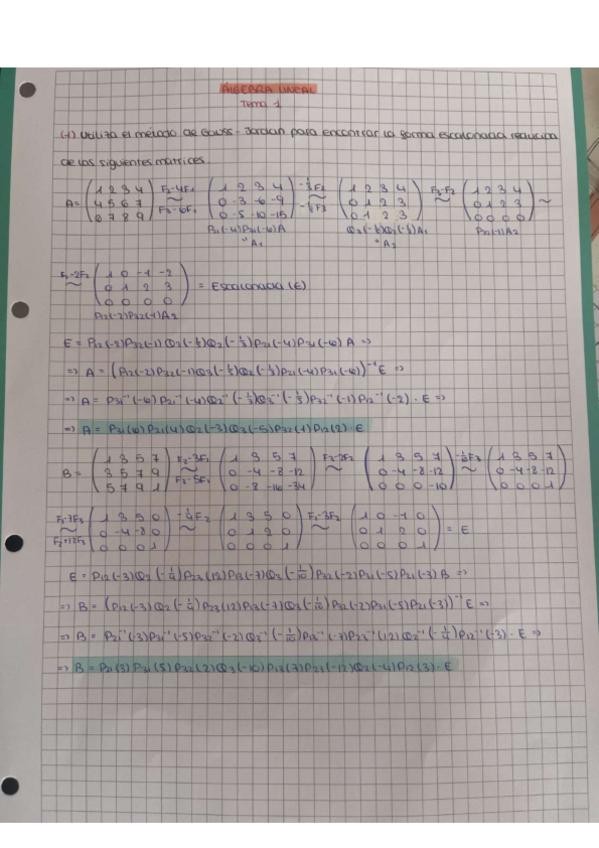 ÁLGEBRA LINEAL
Tema 1
(1) Utiliza el método de Gauss-Jordan para encontrar la forma escalonada reducida
de las siguientes matrices.
A = (1 2 3 4 / 4 5 6 7 / 6 7 8 9) F2-4F1 F3-6F1 ~ (1 2 3 4 / 0 -3 -6 -9 / 0 -5 -10 -15) -1/3F2 -1/5F3 ~ (1 2 3 4 / 0 1 2 3 / 0 1 2 3) F3-F2 ~ (1 2 3 4 / 0 1 2 3 / 0 0 0 0) ~
P21(-4)P31(-6)A
"A1
Q3(-1/5)Q2(-1/3)A1
"A2
P32(-1)A2
F1-2F2 ~ (1 0 -1 -2 / 0 1 2 3 / 0 0 0 0) = Escalonada (E)
P12(-2)P32(-1)A2
E = P12(-2)P32(-1)Q3(-1/5)Q2(-1/3)P21(-4)P31(-6) A =>
=> A = (P12(-2)P32(-1)Q3(-1/5)Q2(-1/3)P21(-4)P31(-6))⁻¹E =>
=> A = P31⁻¹(-6)P21⁻¹(-4)Q2⁻¹(-1/3)Q3⁻¹(-1/5)P32⁻¹(-1)P12⁻¹(-2) · E =>
=> A = P31(6)P21(4)Q2(-3)Q3(-5)P32(1)P12(2) · E
B = (1 3 5 7 / 3 5 7 9 / 5 7 9 1) F2-3F1 F3-5F1 ~ (1 3 5 7 / 0 -4 -8 -12 / 0 -8 -16 -34) F3-2F2 ~ (1 3 5 7 / 0 -4 -8 -12 / 0 0 0 -10) -1/10F3 ~ (1 3 5 7 / 0 -4 -8 -12 / 0 0 0 1)
F1-7F3 F2+12F3 ~ (1 3 5 0 / 0 -4 -8 0 / 0 0 0 1) -1/4F2 ~ (1 3 5 0 / 0 1 2 0 / 0 0 0 1) F1-3F2 ~ (1 0 -1 0 / 0 1 2 0 / 0 0 0 1) = E
E = P12(-3)Q2(-1/4)P23(12)P13(-7)Q3(-1/10)P32(-2)P31(-5)P21(-3) B =>
=> B = (P12(-3)Q2(-1/4)P23(12)P13(-7)Q3(-1/10)P32(-2)P31(-5)P21(-3))⁻¹E =>
=> B = P21⁻¹(-3)P31⁻¹(-5)P32⁻¹(-2)Q3⁻¹(-1/10)P13⁻¹(-7)P23⁻¹(12)Q2⁻¹(-1/4)P12⁻¹(-3) · E =>
=> B = P21(3)P31(5)P32(2)Q3(-10)P13(7)P23(-12)Q2(-4)P12(3) · E